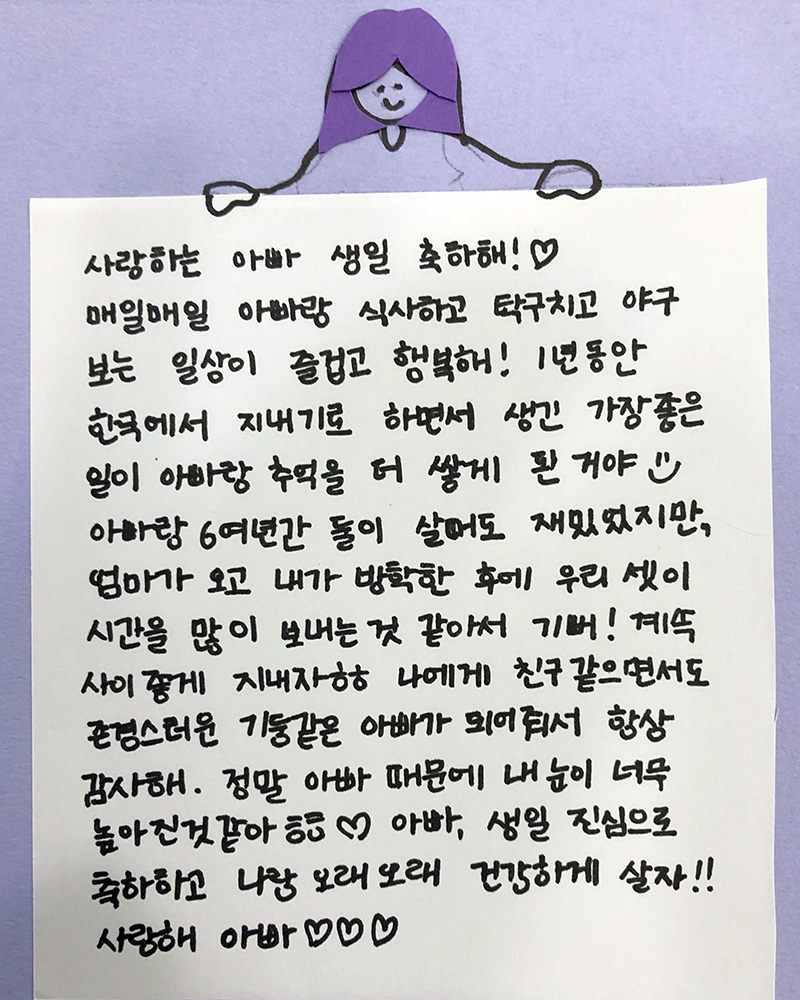 사랑하는 아빠 생일 축하해!♡
매일매일 아빠랑 식사하고 탁구치고 야구
보는 일상이 즐겁고 행복해! 1년동안
한국에서 지내기로 하면서 생긴 가장좋은
일이 아빠랑 추억을 더 쌓게 된거야
아빠랑 6여년간 둘이 살때도 재밌었지만,
엄마가 오고 내가 방학한 후에 우리 셋이
시간을 많이 보내는것 같아서 기뻐! 계속
사이좋게 지내자ㅎㅎ 나에게 친구같으면서도
존경스러운 기둥같은 아빠가 되어줘서 항상
감사해. 정말 아빠 때문에 내 눈이 너무
높아진것같아ㅎㅎ♡ 아빠, 생일 진심으로
축하하고 나랑 오래오래 건강하게 살자!!
사랑해 아빠♡♡♡